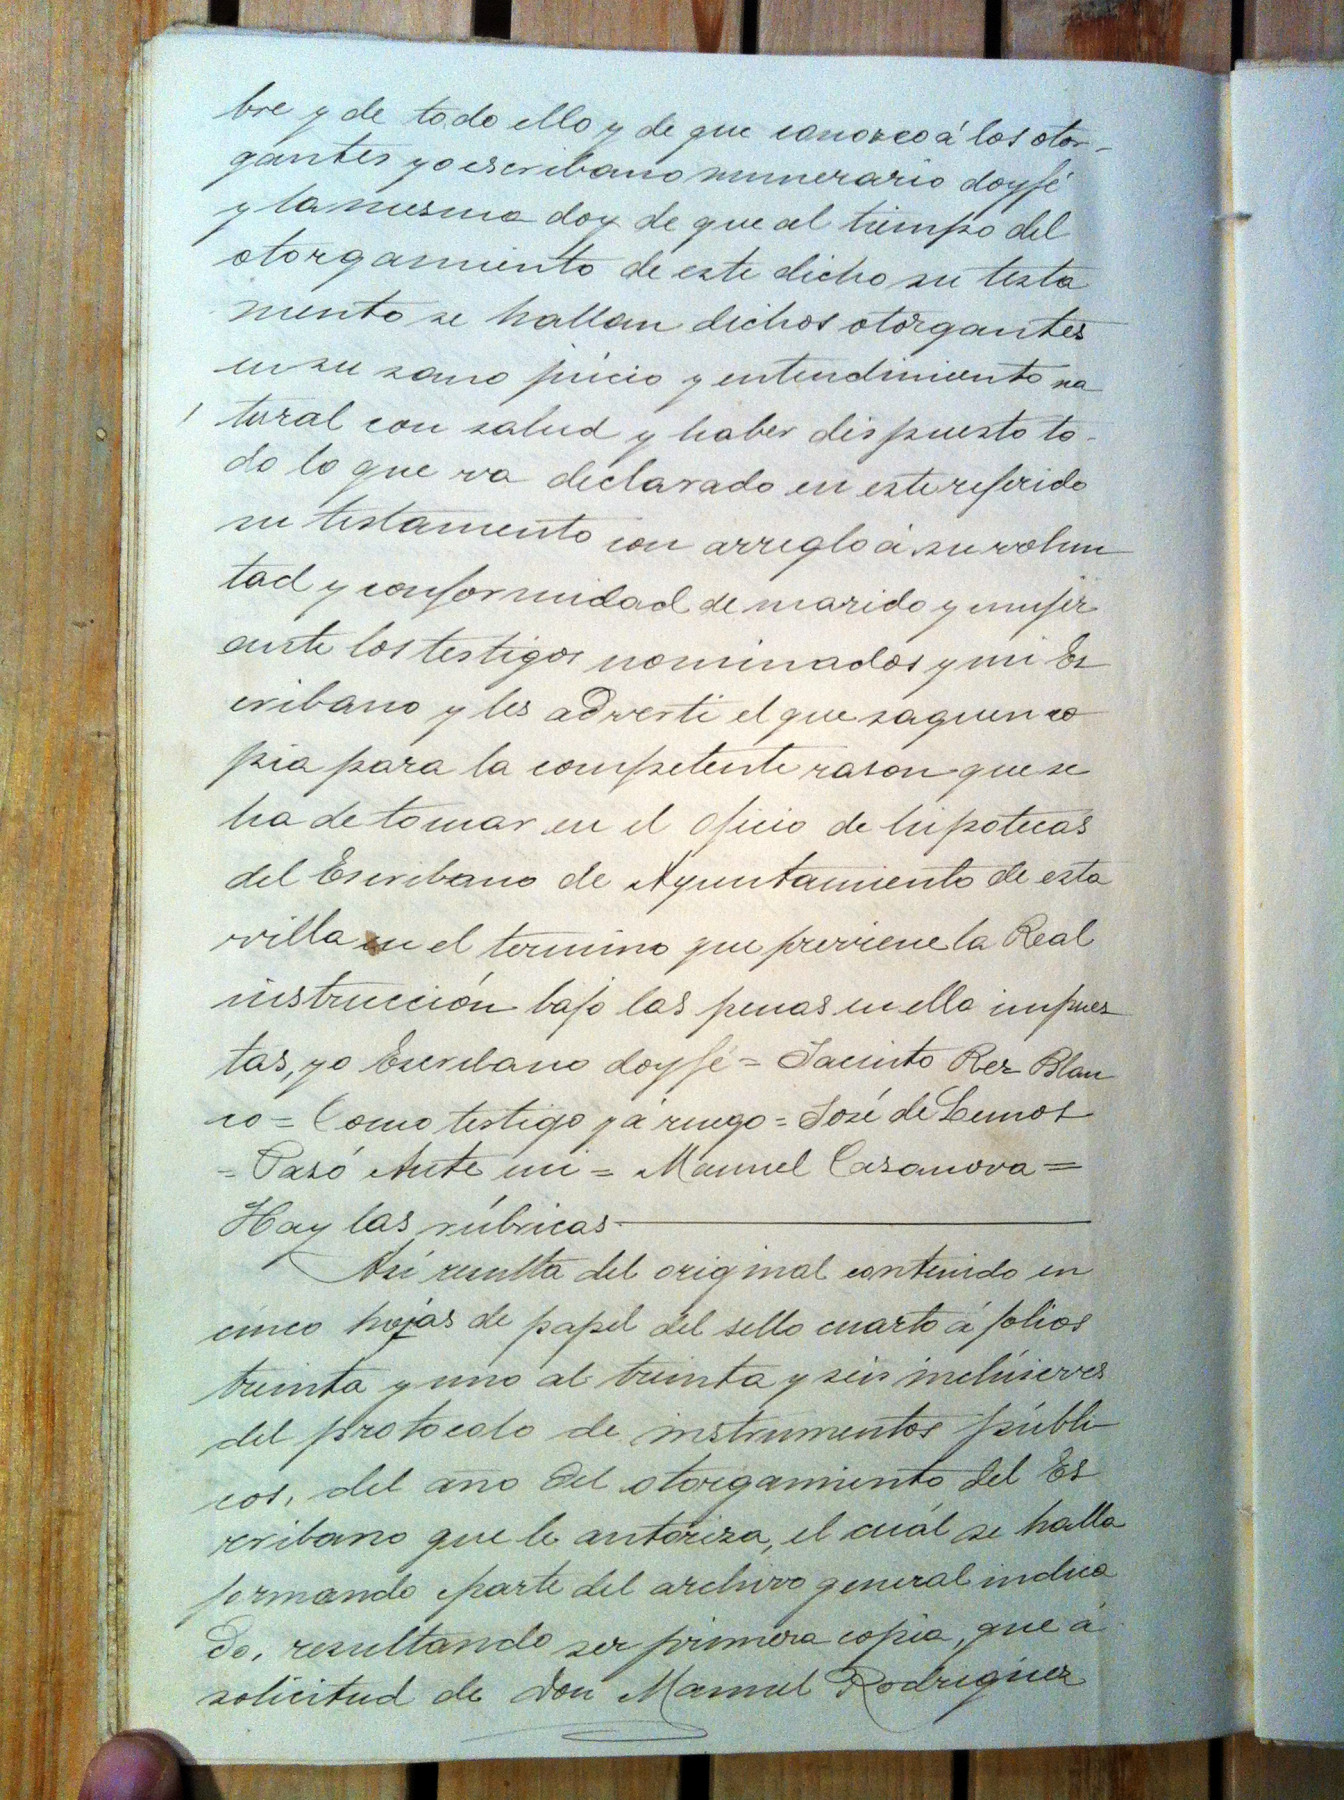 bre y de todo ello y de que conosco á los otor-
gantes yo escribano numerario doy fé
y la mesma doy de que al tiempo del
otorgamiento de este dicho su testa
mento se hallan dichos otorgantes
en su sano júicio y entendimiento na
tural con salud y haber dispuesto to-
do lo que va declarado en este referido
su testamento con arreglo á su volun
tad y conformidad de marido y mujer
ante los testigos nominados y mi Es
cribano y les adverti el que saquen co
pia para la competente rason que se
ha de tomar en el oficio de hipotecas
del Escribano de Ayuntamiento de esta
villa en el termino que previene la Real
instrucción bajo las penas en ella impues
tas, yo Escribano doy fé = Jacinto Rez Blan
co = Como testigo y á ruego = José de Lemos
= Pasó Ante mi = Manuel Casanova =
Hay las rúbricas
Asi resulta del original contenido en
cinco hojas de papel del sello cuarto á folios
treinta y uno al treinta y seis inclúsieves
del protocolo de instrumentos públi
cos, del año del otorgamiento del Es
cribano que le autoriza, el cuál se halla
formando parte del archivo general indica
do, resultando ser primera copia, que á
solicitud de Don Manuel Rodriguez